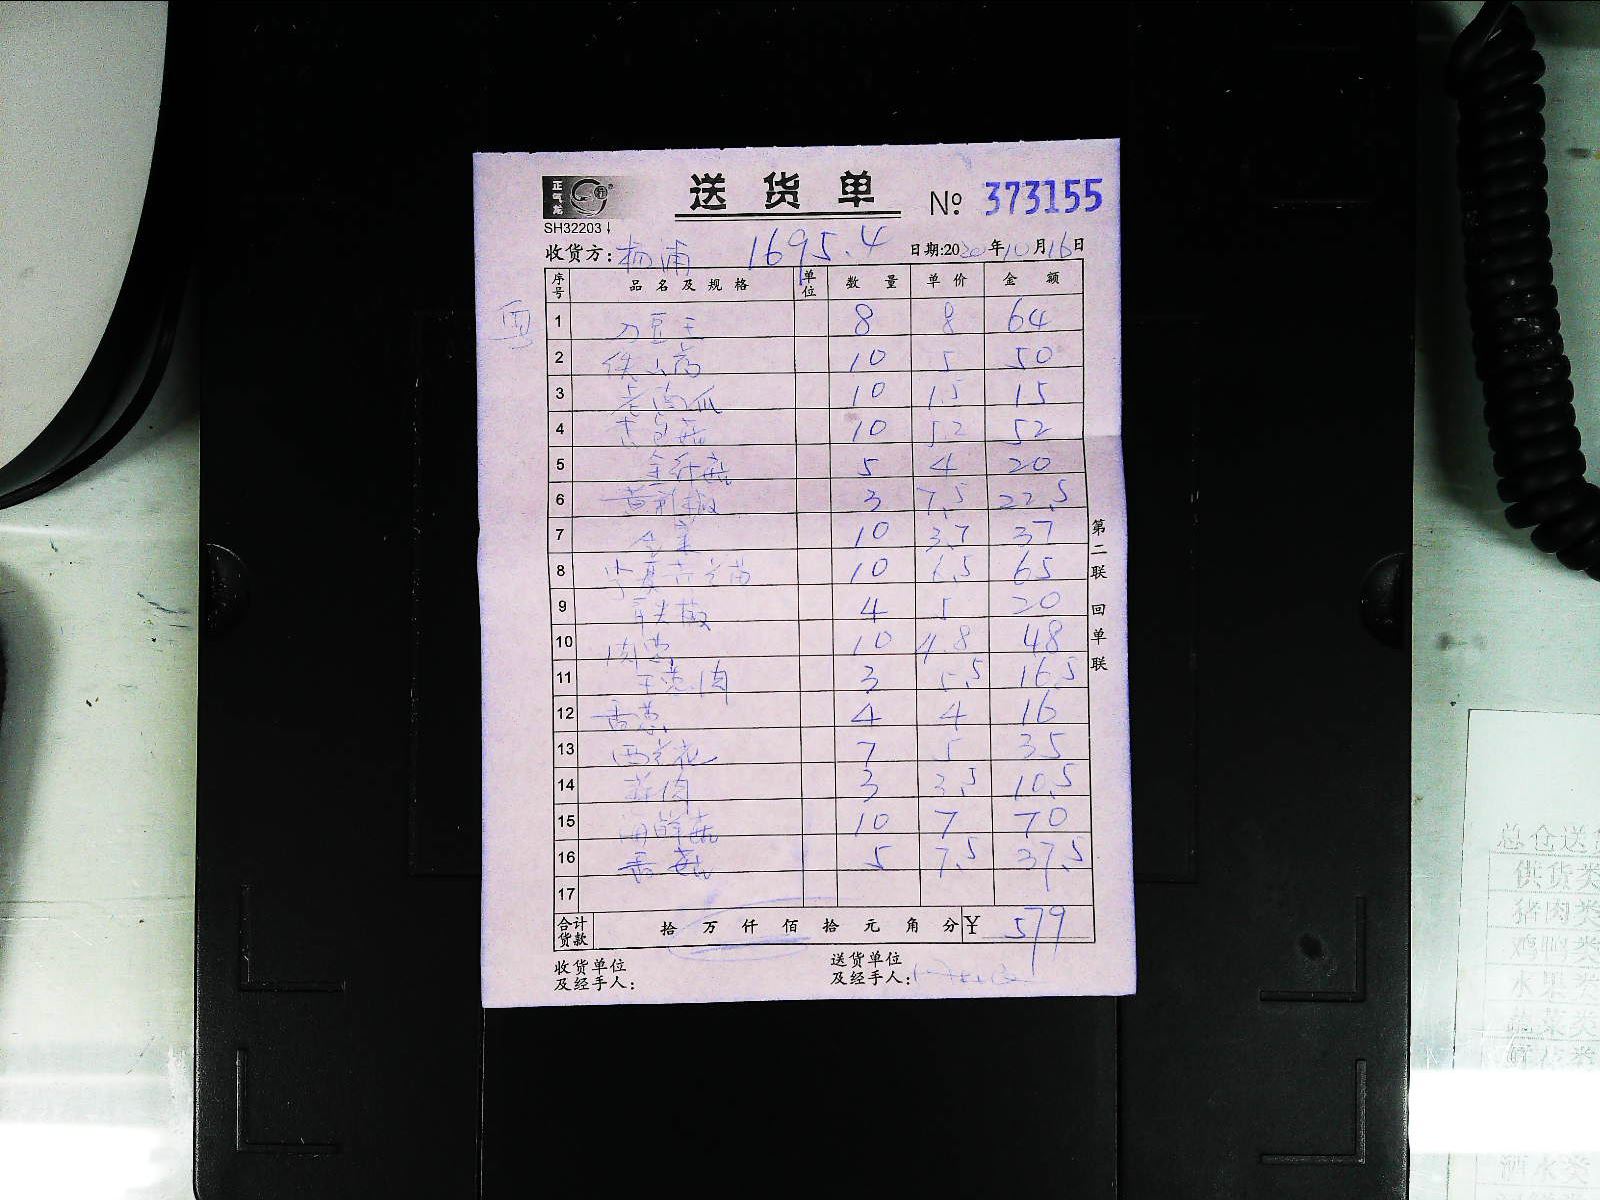 正气龙
送货单 № 373155
SH32203
收货方: 杨浦 1695.4 日期:2020年10月16日
序号 品名及规格 单位 数量 单价 金额
1 刀豆王 8 8 64
2 铁山药 10 5 50
3 老南瓜 10 1.5 15
4 杏鲍菇 10 5.2 52
5 金针菇 5 4 20
6 黄彩椒 3 7.5 22.5
7 10 3.7 37
8 宁夏 10 6.5 65
9 尖椒 4 5 20
10 10 4.8 48
11 肉 3 5.5 16.5
12 香葱 4 4 16
13 西兰花 7 5 35
14 蒜肉 3 3.5 10.5
15 海鲜菇 10 7 70
16 香菇 5 7.5 37.5
17
合计货款 拾 万 仟 佰 拾 元 角 分 ¥ 579
收货单位及经手人:
送货单位及经手人:
第二联 回单联
总仓送
供货类
猪肉类
水果类
蔬菜类
酒水类